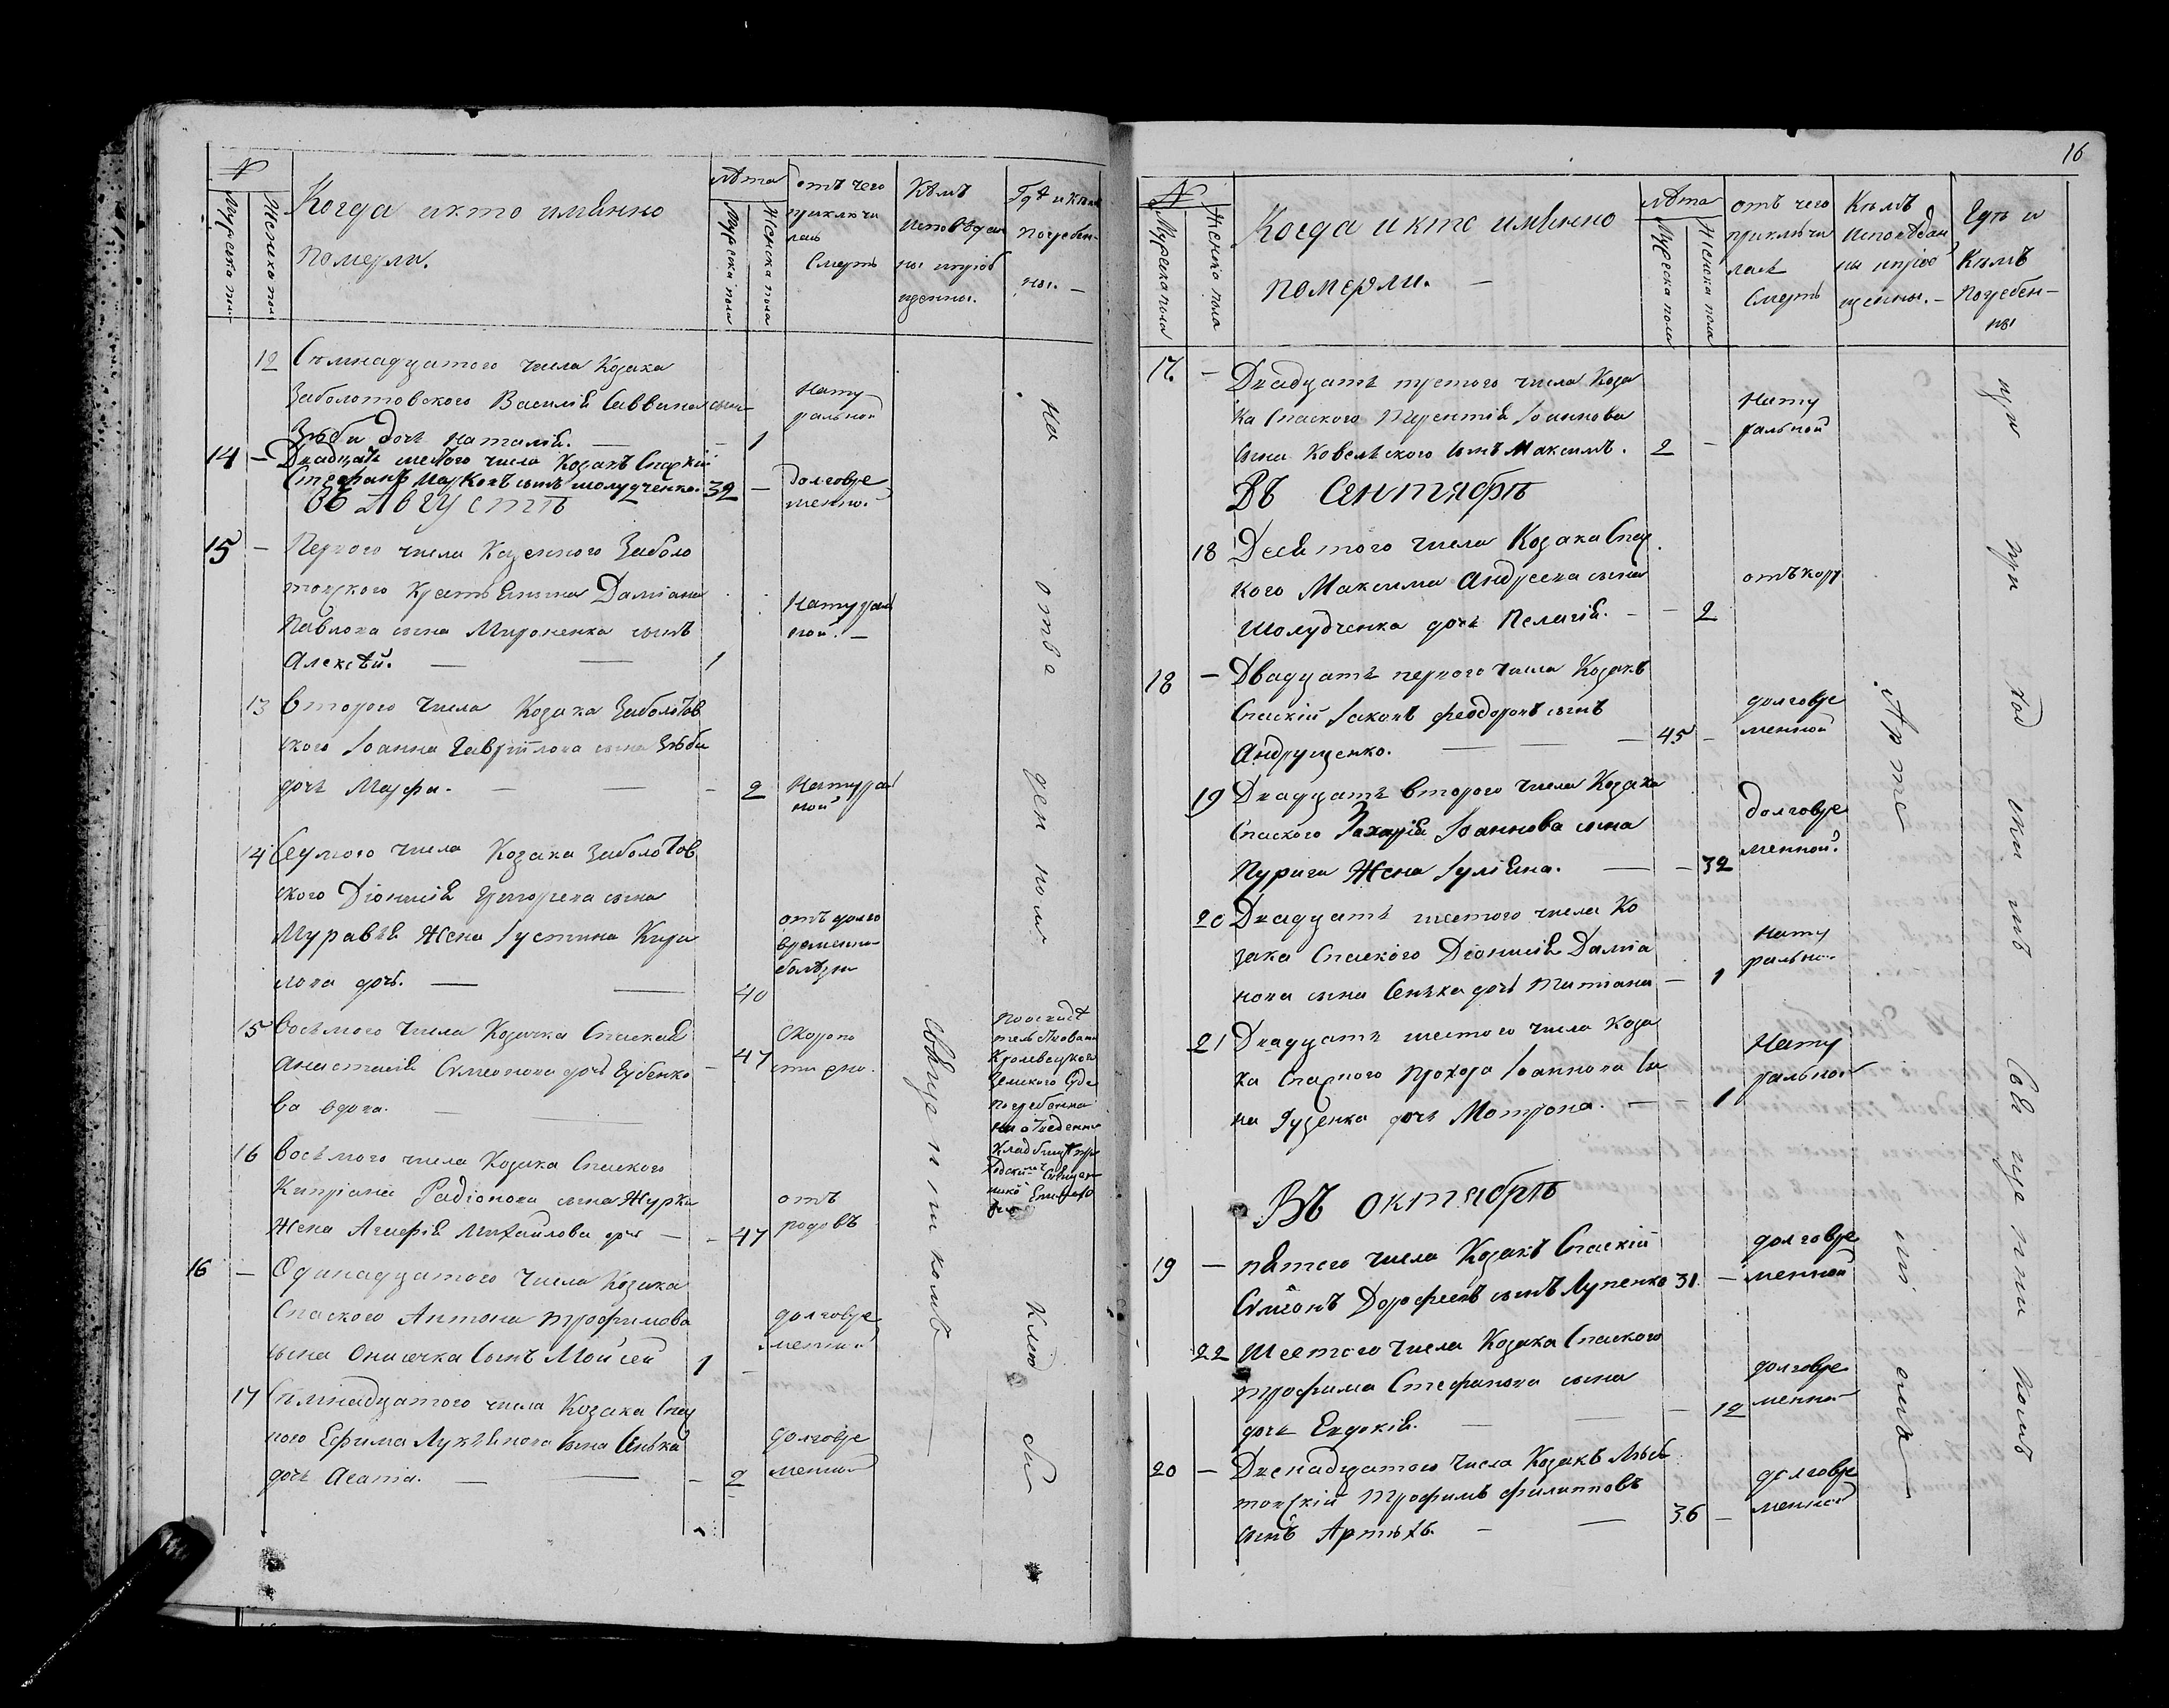 №
Мужеска пол
Женска пол
Когда и кто именно
померли.
Лѣта
Мужеска пола
Женска пола
отъ чего
приключи
лась
Смерть
Кѣмъ
Исповѣдан
ны и приоб
щенны.
Гдѣ и Кѣм
Погребен-
ны. —
12 Сѣмнадцатого числа Козака
Заболотовского Василія Саввина сына
Зѣби дочь Наталія. — 1
Нату
ральной
14 — Двадцать шестого числа Козакъ Спаский
Стефанъ Марковъ сынъ Шолудченко. 32 —
долговре
менно.
Въ Августѣ
15 — Первого числа Казенного Заболо
тоцкого Крестьянина Даміана
Павлова сына Мироненка сынъ
Алексѣй. — — 1
Натурал
ной. —
13 Второго числа Козака Заболотов
ского Іоанна Гавриілова сына Зѣби
дочь Марфа. — — - 2
Натурал
ной
14 Седмого числа Козака Заболотов
ского Діонисія Григорева сына
Муравья Жена Іустина Кири
лова дочь. — — 40
отъ долго
временно
болѣзни
15 Восьмого числа Козачка Спаская
Анастасія Симеонова дочь
ва вдова. — — 47
Скоропо
стижно.
Кролевецкого
Земского Суда
Погребенна
на отведенно
Кладбищѣ при
16 Восьмого числа Козака Спаского
Кипріана Радіонова сына Журка
Жена Агафія Михайлова дочь — - 47
отъ
родовъ
16 — Одинадцатого числа Козака
Спаского Антона Трофимова
сына Онисечка Сынъ Мойсей 1 —
долговре
менной
17 Сѣмнадцатого числа Козака Спас
кого Ефима Лукъянова сына Сенька
дочь Агапія. — — - 2
долговре
менной
на отве ден ном Клад би
Священникомъ
16
№
Мужеска пола
Женска пола
Когда и кто именно
померли. —
Лѣта
Мужеска пола
Женска пола
отъ чего
приключи
лась
Смерть
Кѣмъ
Исповѣдан
ны и приоб
щенны. —
Гдѣ и
Кѣмъ
Погребен-
ны
17. — Двадцать третого числа Коза
ка Спаского Терентія Іоаннова
сына Ковелѣского сынъ Максимъ. 2 —
Нату
ральной
Въ Сентябрѣ
18 Девятого числа Козака Спас
кого Максима Андреева сына
Шолудченка дочь Пелагія. — — 2
отъ кору
18 — Двадцать первого числа Козакъ
Спаскій Іаковъ Феодоровъ сынъ
Андрущенко. — — — 45 —
долговре
менной
19 Двадцать второго числа Козака
Спаского Захарія Іоаннова сына
Пурига Жена Іуліяна. — — 32
долговре
менной.
20 Двадцать шестого числа Ко
зака Спаского Діонисія Даміа
нова сына Сенька дочь Татіана — 1
Нату
рально
21 Двадцать шестого числа Коза
ка Спаского Прохора Іоаннова Сы
на Гузенка дочь Матрона. — — 1
Нату
ральной
Въ октябрѣ
19 — пятого числа Козакъ Спаскій
Симіонъ Дорофеевъ сынъ Лупенко 31. —
долговре
менной
22 Шестого числа Козака Спаского
Трофима Стефанова сына
дочь Евдокія. — — — 12
долговре
менной
20 — Двенадцатого числа Козакъ
Трофимъ Филипповъ
сынъ Артюхъ. — — 36 —
долговре
менной
щи при ход ски мъ Свя щен ни комъ